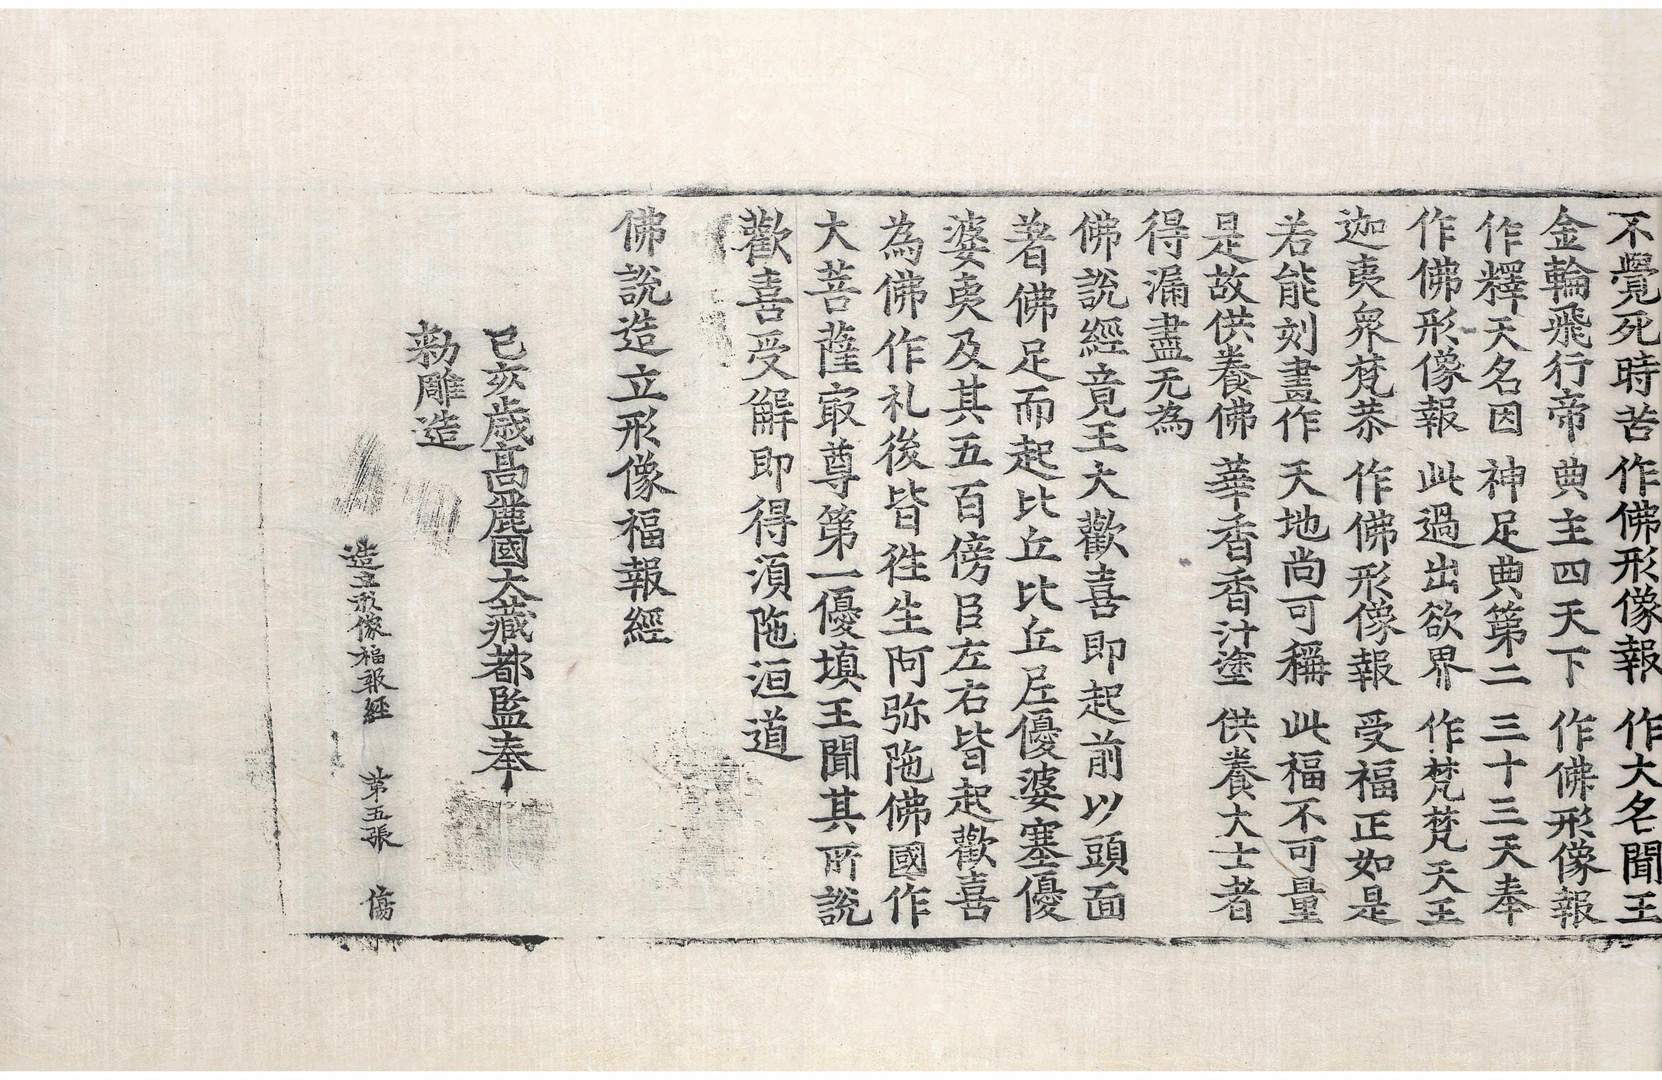 不覺死時苦 作佛形像報 作大名聞王
金輪飛行帝 典主四天下 作佛形像報
作釋天名因 神足典第二 三十三天奉
作佛形像報 此過出欲界 作梵梵天王
迦夷衆梵恭 作佛形像報 受福正如是
若能刻畫作 天地尚可稱 此福不可量
是故供養佛 華香香汁塗 供養大士者
得漏盡无為
佛說經竟王大歡喜即起前以頭面
著佛足而起比丘比丘尼優婆塞優
婆夷及其五百傍臣左右皆起歡喜
為佛作礼後皆徃生阿弥陁佛國作
大菩薩㝡尊第一優填王聞其所說
歡喜受解即得湏陁洹道
佛說造立形像福報經
己亥歲高麗國大藏都監奉
勅雕造
造立形像福報經 第五張 傷